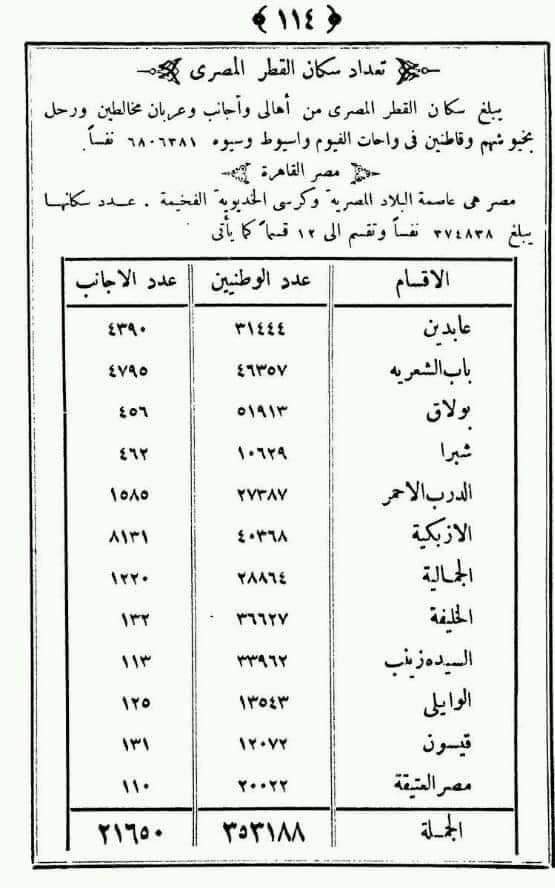 ﴿ ١١٤ ﴾
تعداد سكان القطر المصرى
يبلغ سكان القطر المصرى من أهالى وأجانب وعربان مخالطين ورحل
بخيو شهم وقاطنين فى واحات الفيوم واسيوط وسيوه ٦٨٠٦٣٨١ نفساً.
مصر القاهرة
مصر هى عاصمة البلاد المصرية وكرسى الخديوية الفخيمة . عدد سكانها
يبلغ ٣٧٤٨٣٨ نفساً وتقسم الى ١٢ قسماً كما يأتى
الاقسام عدد الوطنيين عدد الاجانب
عابدين ٣١٤٤٤ ٤٣٩٠
باب الشعريه ٤٦٣٥٧ ٤٧٩٥
بولاق ٥١٩١٣ ٤٥٦
شبرا ١٠٦٢٩ ٤٦٢
الدرب الاحمر ٢٧٣٨٧ ١٥٨٥
الازبكية ٤٠٣٦٨ ٨١٣١
الجمالية ٢٨٨٦٤ ١٢٢٠
الخليفة ٣٦٦٢٧ ١٣٢
السيده زينب ٣٣٩٦٢ ١١٣
الوايلى ١٣٥٤٣ ١٢٥
قيسون ١٢٠٧٢ ١٣١
مصر العتيقة ٢٠٠٢٢ ١١٠
الجملة ٣٥٣١٨٨ ٢١٦٥٠